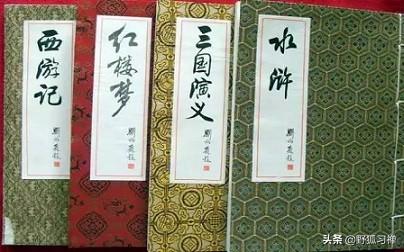 西游记
红楼梦
三国演义
水浒
头条 @野狐习禅